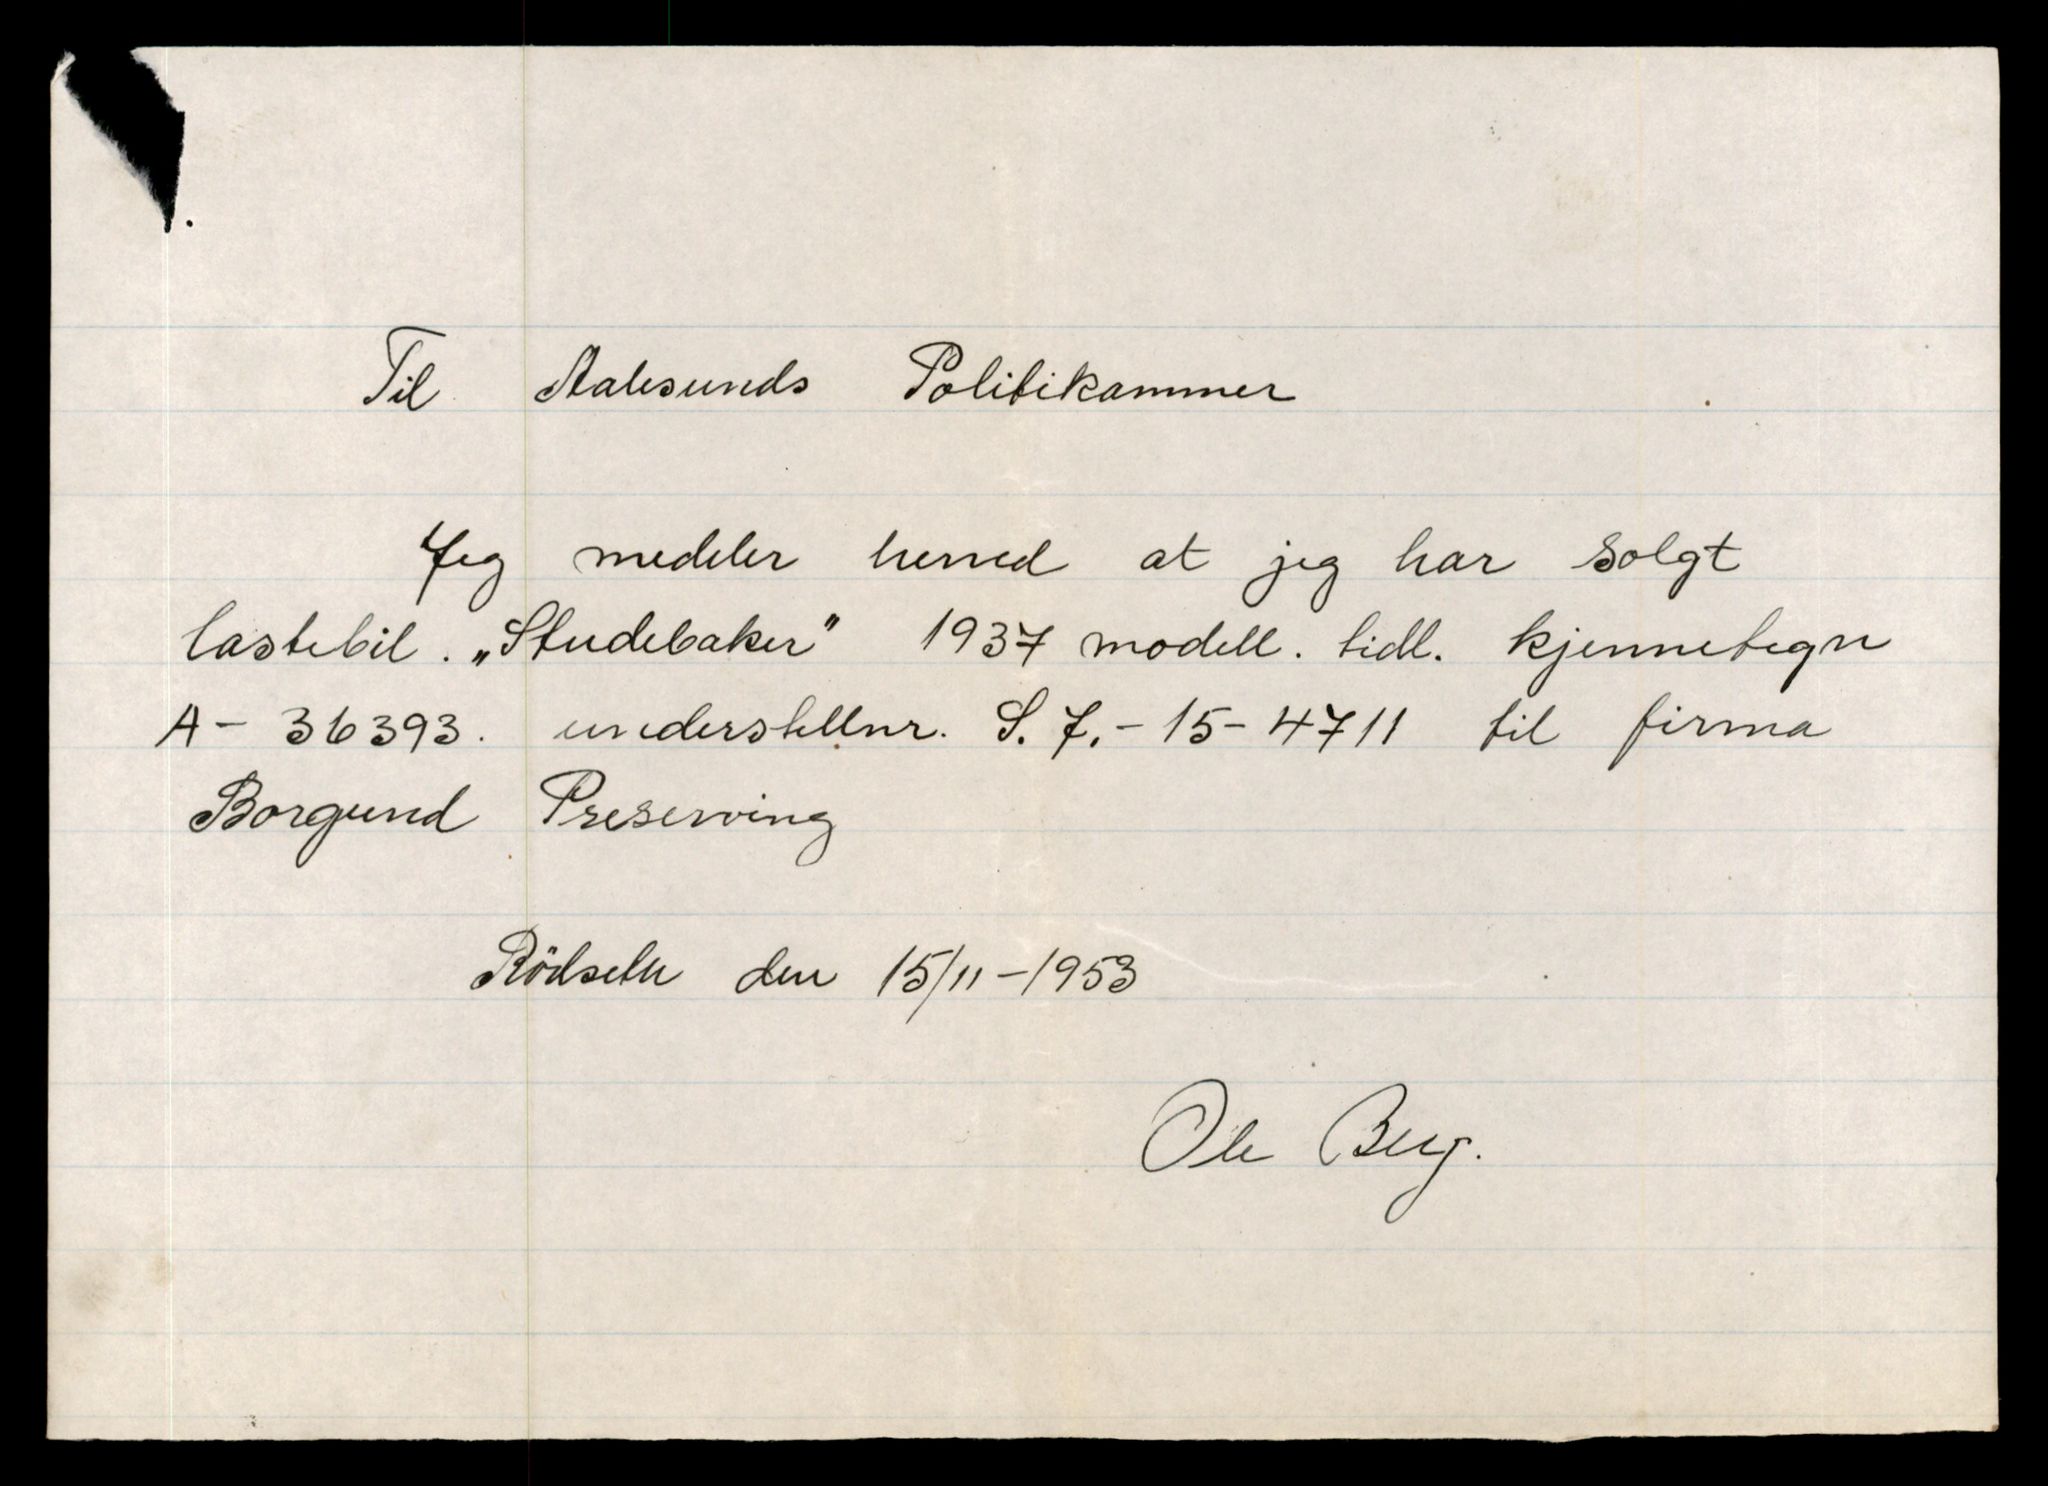 Til Aalesunds Politikammer
Jeg medeler herved at jeg har solgt
lastebil. „Studebaker" 1937 modell. tidl. kjennetegn
A- 36393. understellnr. S. 7.- 15- 4711 til firma
Borgund Preserving
Rödseth den 15/11-1953
Ole Berg.